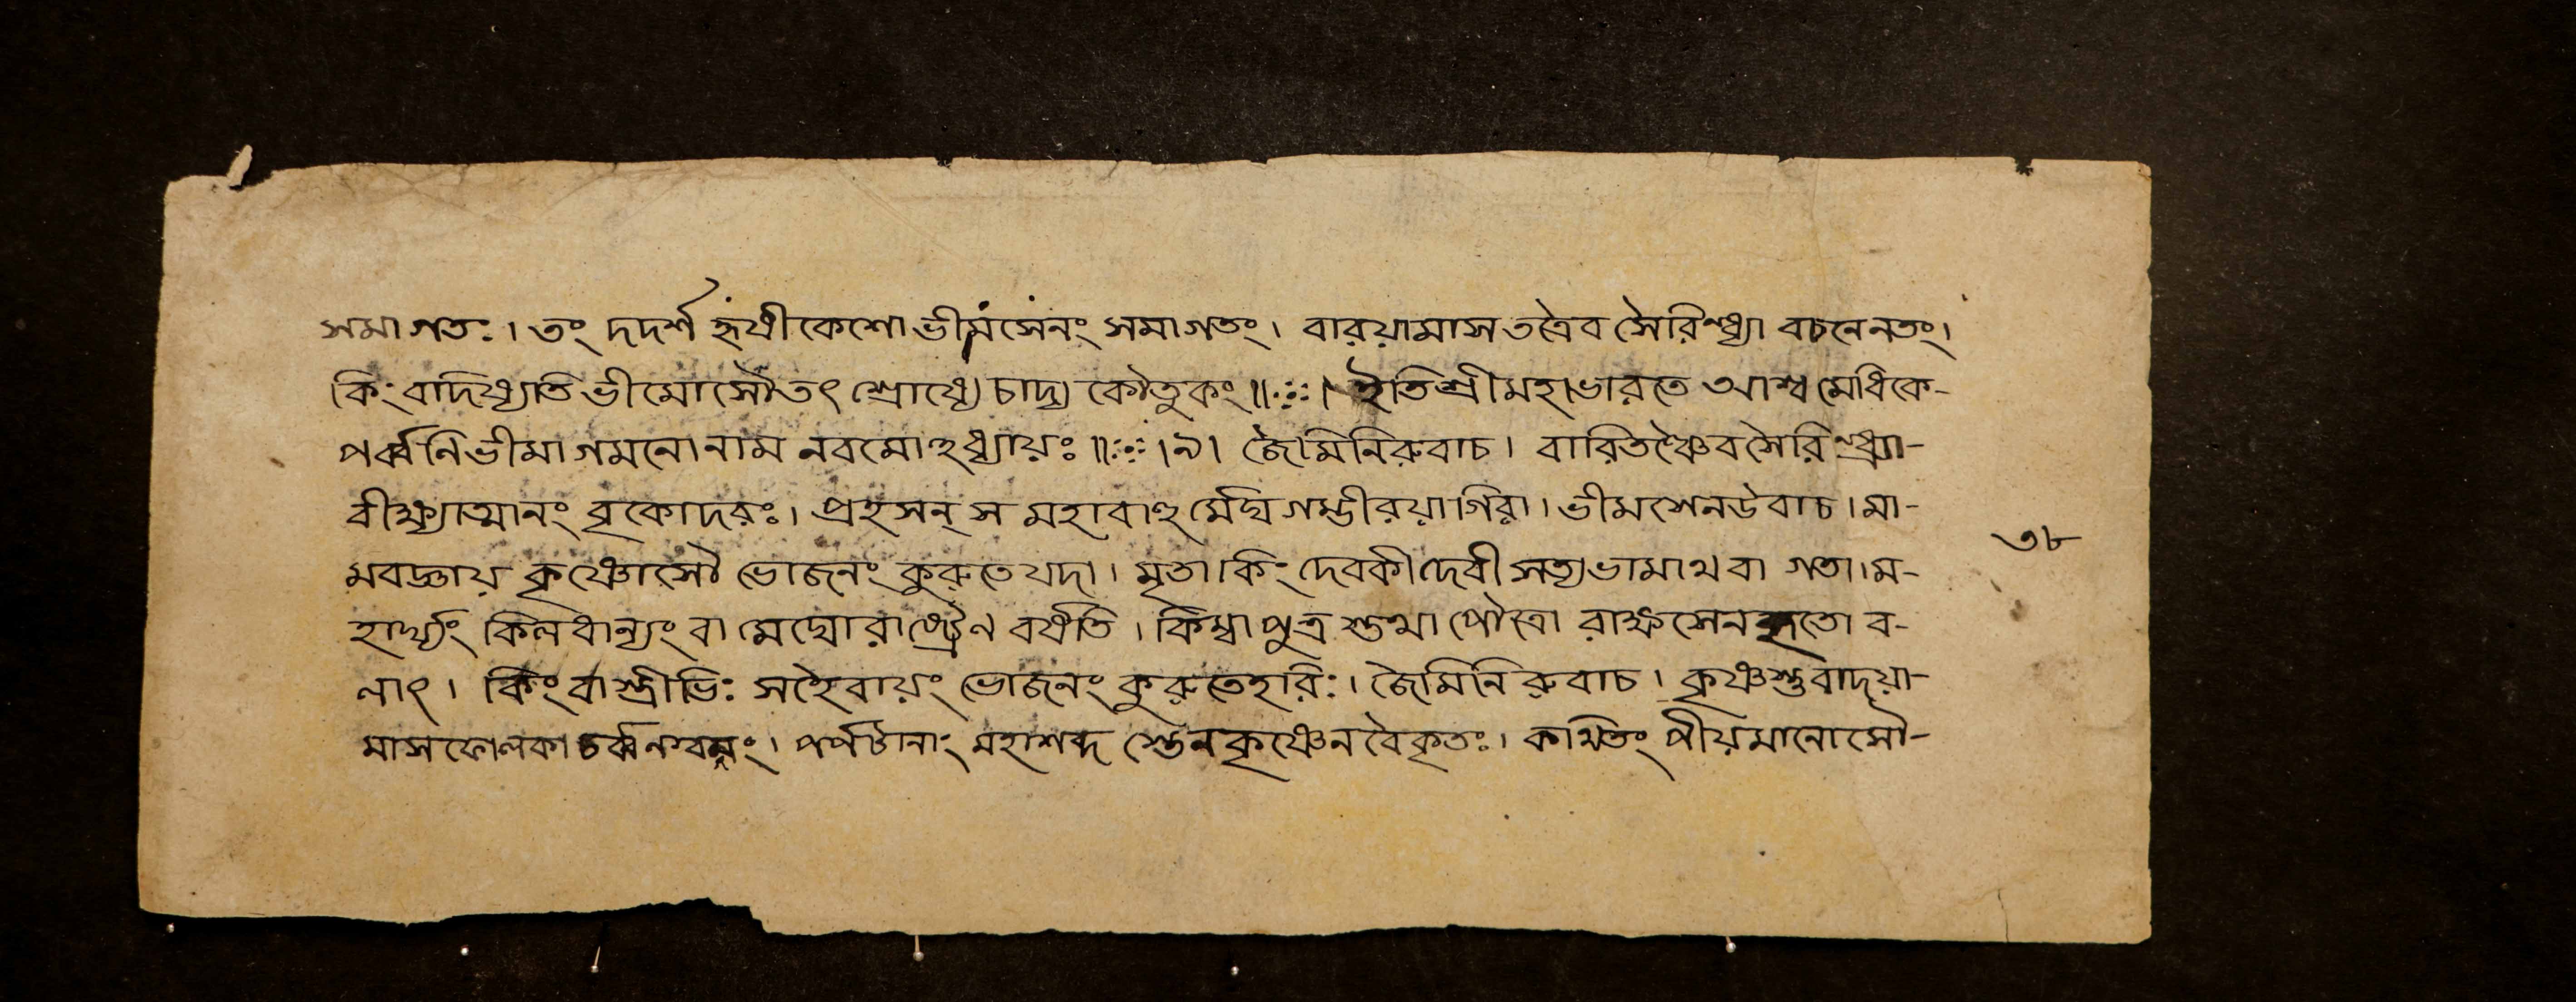 সমাগতঃ। তং দদর্শ হৃষীকেশো ভীমসেনং সমাগতং। বারয়ামাস তত্রৈব সৈরিন্ধ্র্যা বচনেনতং।
কিং বাদিষ্যতি ভীমোসৌতৎ শ্রোষ্যে চাদ্য কৌতুকং॥ ইতিশ্রীমহাভারতে আশ্বমেধিকে-
পর্ব্বনিভীমাগমনোনাম নবমোঽধ্যায়ঃ॥ ।৯। জৈমিনিরুবাচ। বারিতঞ্চৈবসৈরিন্ধ্র্যা-
বীক্ষ্যাত্মানং বৃকোদরঃ। প্রহসন্ স মহাবাহু র্মেঘগম্ভীরয়াগিরা। ভীমশেনউবাচ। মা-
মবজ্ঞায় কৃষ্ণোসৌ ভোজনং কুরুতে যদা। মৃতা কিং দেবকীদেবী সত্যভামাথবা গতা। ম- ৩৮
হার্ঘ্যং কিলধান্যং বা মেঘোরাষ্ট্রেণ বর্ষতি। কিম্বা পুত্র পৌত্রো রাক্ষসেনহৃতো ব-
লাৎ। কিংবা স্ত্রীভিঃ সহৈবায়ং ভোজনং কুরুতেহরিঃ। জৈমিনিরুবাচ। কৃষ্ণস্তুবাদয়া-
মাস পর্পটানাং মহাশব্দ স্তেনকৃষ্ণেনবৈকৃতঃ। কথিতং পীয়মানোসৌ-